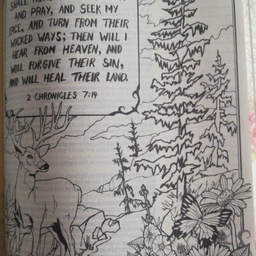 SHALL
AND PRAY, AND SEEK MY
FACE, AND TURN FROM THEIR
WICKED WAYS; THEN WILL I
HEAR FROM HEAVEN, AND
WILL FORGIVE THEIR SIN,
AND WILL HEAL THEIR LAND.
2 CHRONICLES 7:14